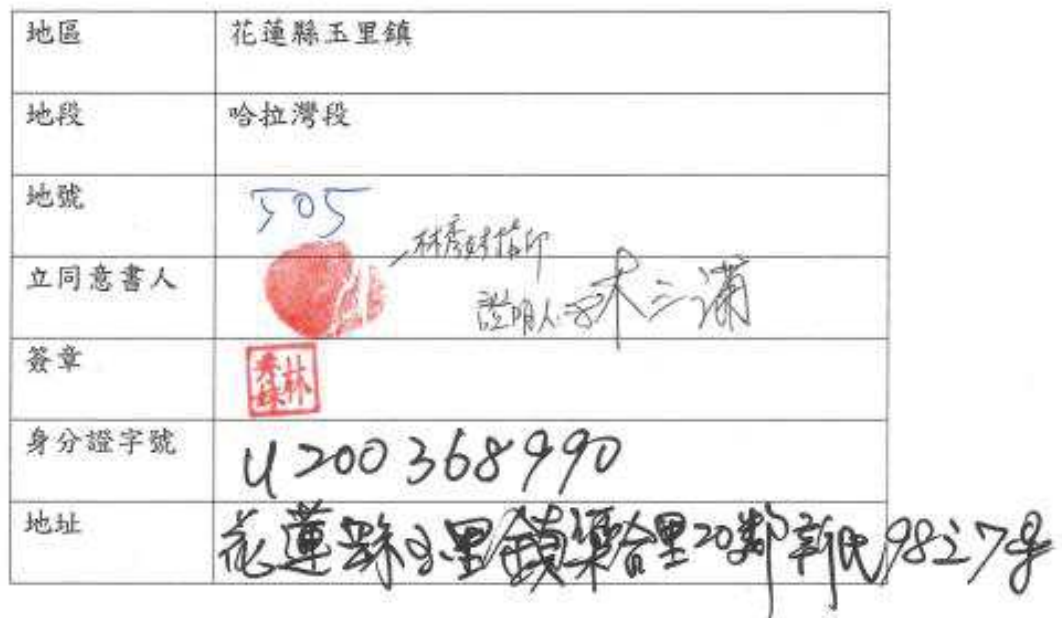 地區 花蓮縣玉里鎮
地段 哈拉灣段
地號 505
林秀妹指印
立同意書人
證明人:
三滿
簽章 林秀妹
身分證字號 U200368990
地址 花蓮縣玉里鎮樂合里20鄰新民98之7号